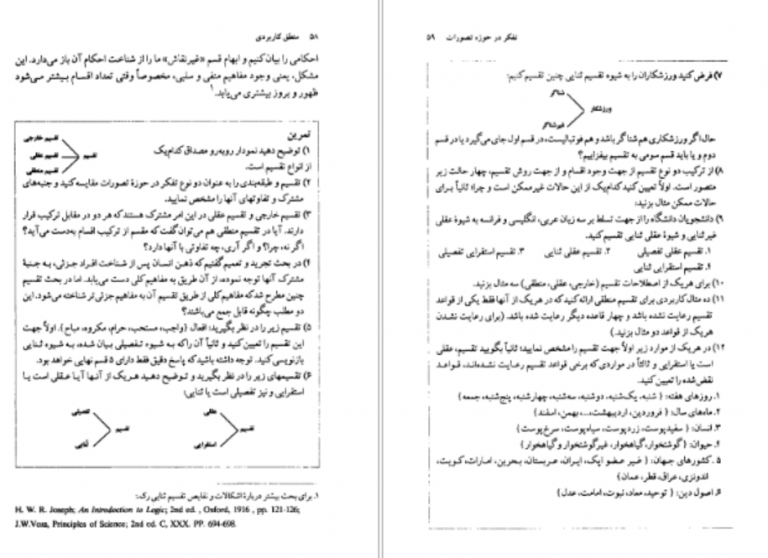 ۵۸ منطق کاربردی
احکامی را بیان کنیم و ابهام قسم «غیرنقاش» ما را از شناخت احکام آن باز می‌دارد. این
مشکل، یعنی وجود مفاهیم منفی و سلبی، مخصوصاً وقتی تعداد اقسام بیشتر می‌شود
ظهور و بروز بیشتری می‌یابد.۱
تمرین
۱) توضیح دهید نمودار روبه‌رو مصداق کدام‌یک
از انواع تقسیم است.
تقسیم خارجی
تقسیم عقلی
تقسیم منطقی
تقسیم
۲) تقسیم و طبقه‌بندی را به عنوان دو نوع تفکر در حوزهٔ تصورات مقایسه کنید و جنبه‌های
مشترک و تفاوتهای آنها را مشخص نمایید.
۳) تقسیم خارجی و تقسیم عقلی در این امر مشترک هستند که هر دو در مقابل ترکیب قرار
دارند. آیا در تقسیم منطقی هم می‌توان گفت که مقسم از ترکیب اقسام به‌دست می‌آید؟
اگر نه، چرا؟ و اگر آری، چه تفاوتی با آنها دارد؟
۴) در بحث تجرید و تعمیم گفتیم که ذهن انسان پس از شناخت افراد جزئی، به جنبهٔ
مشترک آنها توجه نموده، از آن طریق به مفاهیم کلی دست می‌یابد. اما در بحث تقسیم
چنین مطرح شد که مفاهیم کلی از طریق تقسیم آن به مفاهیم جزئی‌تر شناخته می‌شود. این
دو مطلب چگونه قابل جمع می‌باشند؟
۵) تقسیم زیر را در نظر بگیرید: افعال (واجب، مستحب، حرام، مکروه، مباح). اولاً جهت
این تقسیم را تعیین کنید و ثانیاً آن را که به شیوه تفصیلی بیان شده، به شیوه ثنایی
بازنویسی کنید. توجه داشته باشید که پاسخ دقیق فقط دارای ۵ قسم نهایی خواهد بود.
۶) تقسیمهای زیر را در نظر بگیرید و توضیح دهید هریک از آنها آیا عقلی است یا
استقرایی و نیز تفصیلی است یا ثنایی:
عقلی
تقسیم
استقرایی
تفصیلی
تقسیم
ثنایی
۱. برای بحث بیشتر دربارهٔ اشکالات و نقایص تقسیم ثنایی رک:
H. W. R. Joseph; An Introduction to Logic; 2nd ed. , Oxford, 1916 , pp. 121-126;
J.W.Voza, Principles of Science; 2nd ed. C, XXX. PP. 694-698.
تفکر در حوزه تصورات ۵۹
۷) فرض کنید ورزشکاران را به شیوه تقسیم ثنایی چنین تقسیم کنیم:
شناگر
ورزشکار
غیرشناگر
حال اگر ورزشکاری هم شناگر باشد و هم فوتبالیست، در قسم اول جای می‌گیرد یا در قسم
دوم و یا باید قسم سومی به تقسیم بیفزاییم؟
۸) از ترکیب دو نوع تقسیم از جهت وجود اقسام و از جهت روش تقسیم، چهار حالت زیر
متصور است. اولاً تعیین کنید کدام‌یک از این حالات غیرممکن است و چرا؛ ثانیاً برای
حالات ممکن مثال بزنید:
۱. تقسیم عقلی تفصیلی ۲. تقسیم عقلی ثنایی ۳. تقسیم استقرایی تفصیلی
۴. تقسیم استقرایی ثنایی
۹) دانشجویان دانشگاه را از جهت تسلط بر سه زبان عربی، انگلیسی و فرانسه به شیوهٔ عقلی
غیرثنایی و شیوهٔ عقلی ثنایی تقسیم کنید.
۱۰) برای هریک از اصطلاحات تقسیم (خارجی، عقلی، منطقی) سه مثال بزنید.
۱۱) ده مثال کاربردی برای تقسیم منطقی ارائه کنید که در هریک از آنها فقط یکی از قواعد
تقسیم رعایت نشده باشد و چهار قاعده دیگر رعایت شده باشد. (برای رعایت نشدن
هریک از قواعد دو مثال بزنید.)
۱۲) در هریک از موارد زیر اولاً جهت تقسیم را مشخص نمایید؛ ثانیاً بگویید تقسیم، عقلی
است یا استقرایی و ثالثاً در مواردی که برخی قواعد تقسیم رعایت نشده‌اند، قواعد
نقض‌شده را تعیین کنید.
۱. روزهای هفته: ( شنبه، یک‌شنبه، دوشنبه، سه‌شنبه، چهارشنبه، پنج‌شنبه، جمعه)
۲. ماه‌های سال: ( فروردین، اردیبهشت،...، بهمن، اسفند)
۳. انسان: ( سفیدپوست، زردپوست، سیاه‌پوست، سرخ‌پوست)
۴. حیوان: ( گوشتخوار، گیاهخوار، غیرگوشتخوار و گیاهخوار)
۵. کشورهای جهان: ( غیر عضو اپک، ایران، عربستان، بحرین، امارات، کویت،
اندونزی، عراق، قطر، عمان)
۶. اصول دین: ( توحید، معاد، نبوت، امامت، عدل)